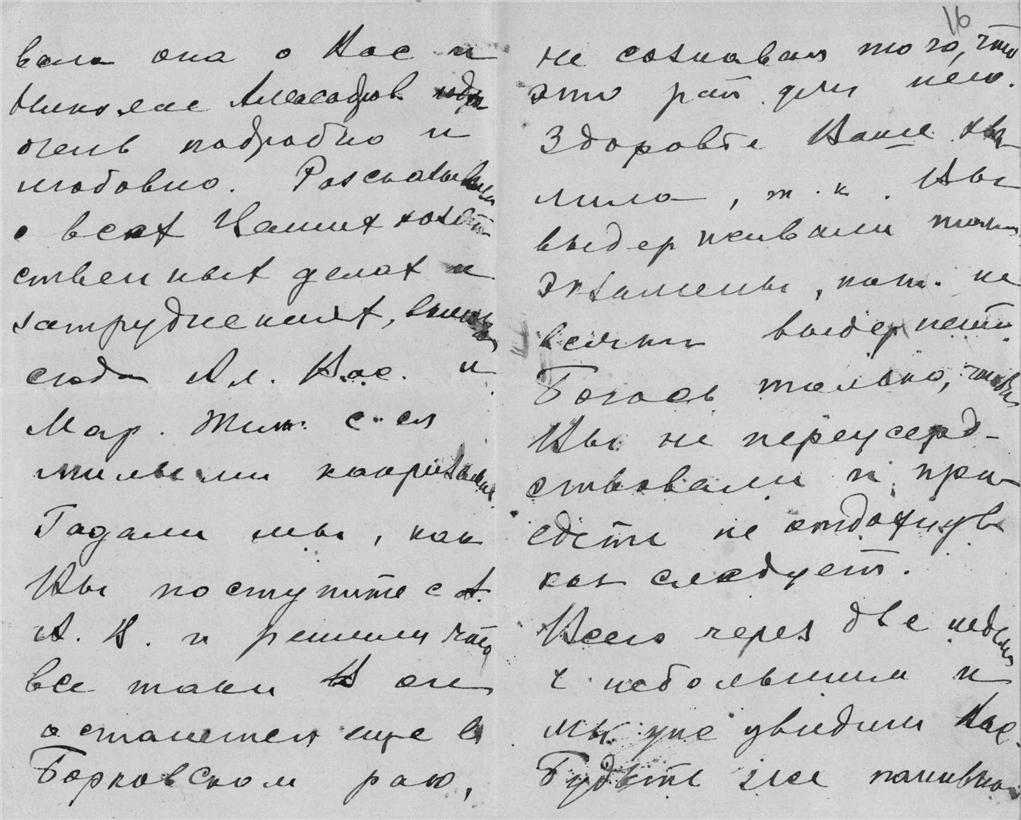 вала она о Вас и
Николае Александров.
очень подробно и
любовно. Рассказывала
о всех Ваших хозяй-
ственных делах и
затруднениях,
сюда Ал. Вас. и
Мар. Тим. с ея
милыми капризами
Гадали мы, как
Вы поступите с А.
А. В. и решили что
все таки В он
останется еще в
Борковском раю,
16
не сознавая того, что
это рай для него.
Здоровье Ваше хва-
лила, т. к. Вы
выдерживали такие
экзамены, кот. не
всякий выдержит.
Боюсь только, чтобы
Вы не переусерд-
ствовали и при-
едете не отдохнув
как следует.
Всего через две недели
с небольшим и
мы уже увидим Вас.
Будьте же паинькой